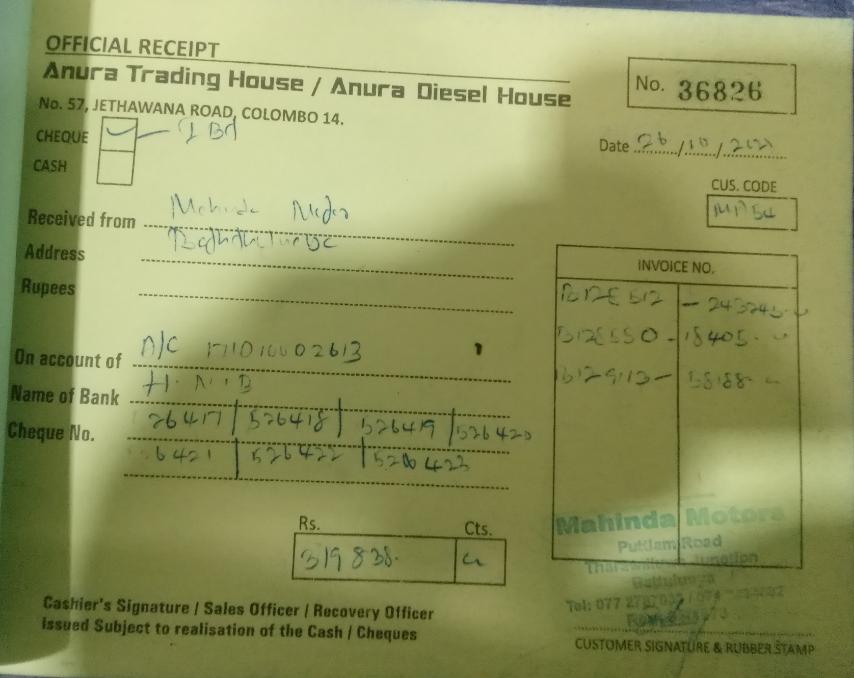 OFFICIAL RECEIPT
Anura Trading House / Anura Diesel House
No. 36826
No. 57, JETHAWANA ROAD, COLOMBO 14.
CHEQUE
CASH
Date 26/10/
CUS. CODE
Received from Mahinda
Address
Rupees
INVOICE NO.
B12E512 - 243245
B12E550 - 18405
58188
On account of A/C
Name of Bank H.N.B
Cheque No. 26417 / 526418 / 526419 / 526420
6421 / 526422 / 526423
Rs. Cts.
319838
Mahinda Motors
Puttlam Road
Junction
Tel: 077
Cashier's Signature / Sales Officer / Recovery Officer
Issued Subject to realisation of the Cash / Cheques
CUSTOMER SIGNATURE & RUBBER STAMP